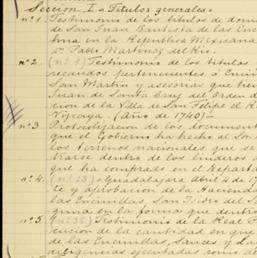 Sección I = Títulos generales.
nº 1. Testimonio de los títulos de dom
de San Juan Bautista de las En
ma en la República Mexicana
Sn. Pablo Martínez del Río.
nº 2. (nº 1) Testimonio de los títulos
recaudos pertenecientes á Encin
San Martín y asesorias que hiz
Juan de Santa Cruz del Orden d
cion de la Villa de San Felipe el R
Vizcaya. (Año de 1740)
nº 3. Protocolización de los document
que el Gobierno ha hecho al Son
los terrenos nacionales que se
trarse dentro de los linderos
que ha comprado en el Depart
nº 4. (nº 23) Guadalajara Abril 5 de 17
te y aprobación de la Hacienda
las Encinillas, San Isidro del S
guna en la forma que dentro
nº 5. Testimonio de la Real
cucion de la cantidad en que
de las Encinillas, Sauces y La
diligencias ejecutadas como de